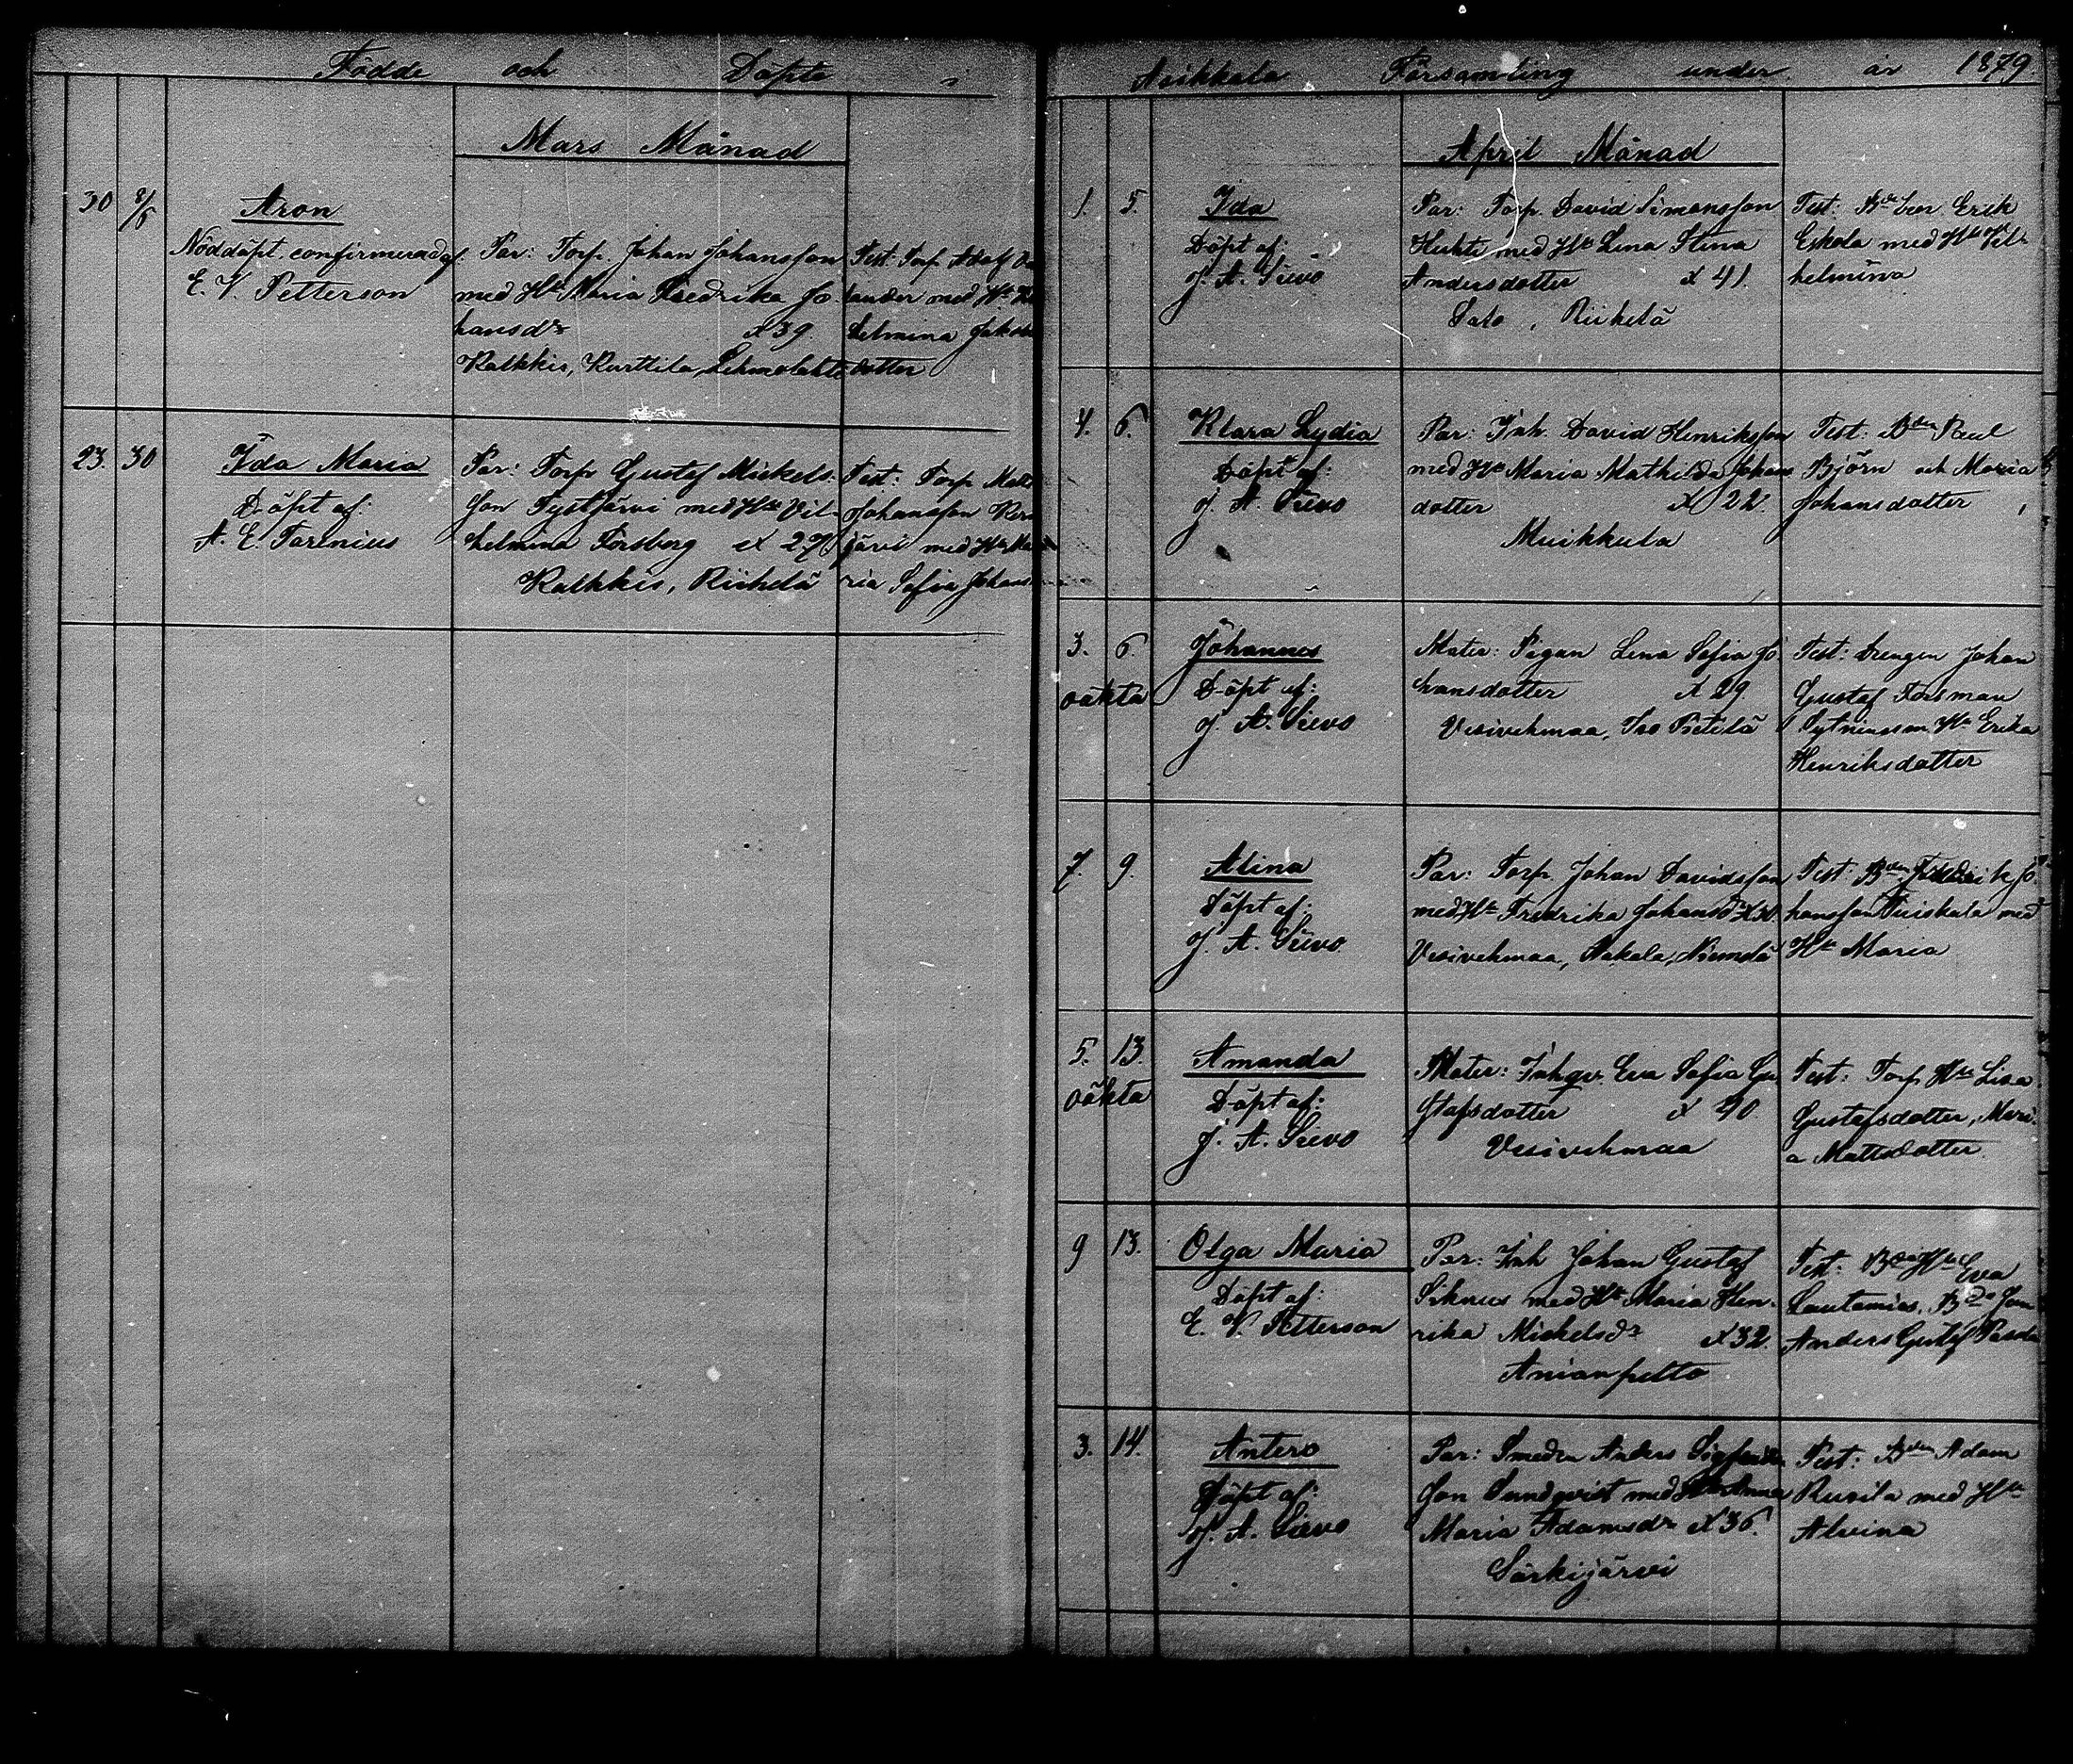 Födde och Döpte i
Mars Månad
30 8/5 Aron
Nöddöpt, confirmerad af
E. V. Petterson
Par: Torp. Johan Johansson
med Hu Maria Fredrika Jo
hansdr x 39.
Kalkkis, Kurttila, Lehmolahti
Test: Torp. Adolf
lander med Hu
helmina
dotter
23. 30 Ida Maria
Döpt af:
A. E. Forenius
Par: Torp. Gustaf Mickels
son Tystjärvi med Hu Vil-
helmina Forsberg x 27
Kalkkis, Riihelä
Test: Torp. Matts
Johansson
järvi med Hu Ma
ria Sofia Johans
Asikkala Församling under år 1879.
April Månad
1. 5. Ida
Döpt af:
J. A. Sievo
Par: Torp. David Simonsson
Huhti med Hu Lena Stina
Andersdotter x 41.
Salo, Riihelä
Test: Erik
Eskola med Hu Vil-
helmina
4. 6. Klara Lydia
Döpt af:
J. A. Sievo
Par: Inh. David Henriksson
med Hu Maria Mathilda Johans
dotter x 22.
Muikkula
Test: Bden Paul
Björn och Maria
Johansdotter
3. 6. Johannes
oäkta Döpt af:
J. A. Sievo
Mater: Pigan Lena Sofia Jo
hansdotter x 29.
Vesivehmaa, Iso Pietilä
Test: Drengen Johan
Gustaf Forsman
Hu Erika
Henriksdotter
7. 9. Alina
Döpt af:
J. A. Sievo
Par: Torp. Johan Davidsson
med Hu Fredrika Johansd x 30.
Vesivehmaa, Nakala, Niemelä
Test: Bden Fredrik Jo
hansson med
Hu Maria
5. 13. Amanda
oäkta Döpt af:
J. A. Sievo
Mater: Inhqv. Eva Sofia Gu
stafsdotter x 40.
Vesivehmaa
Test: Torp. Hu Lisa
Gustafsdotter, Mari-
a Mattsdotter
9 13. Olga Maria
Döpt af:
E. V. Petterson
Par: Inh Johan Gustaf
Siknus med Hu Maria Hen-
rika Mickelsdr x 32.
Anianpelto
Test: Hu Eva
Lautamies,
Anders Gustaf
3. 14. Antero
Döpt af:
J. A. Sievo
Par: Smeden Anders Sigfrids
son Sundqvist med Hu Anna
Maria Adamsdr x 36.
Särkijärvi
Test: Bden Adam
Rusila med Hu
Alvina